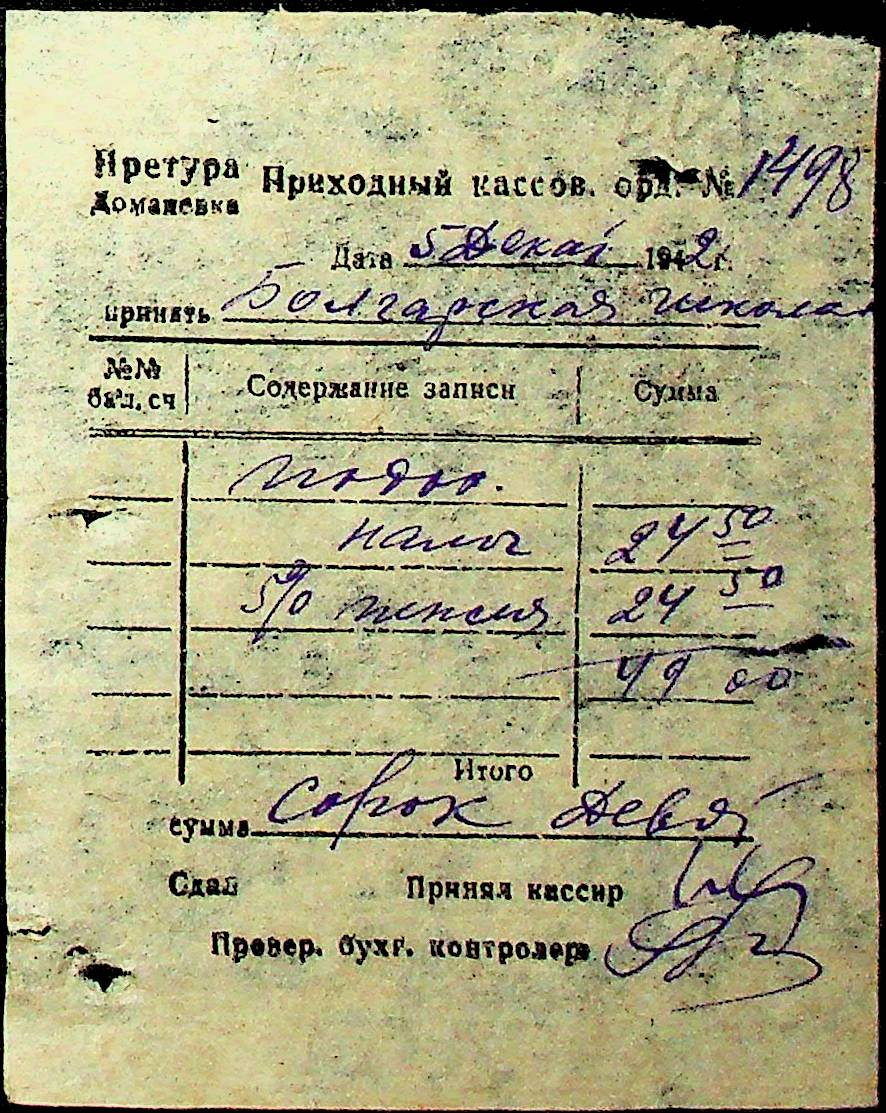 Претура Приходный кассов. орд. № 1498
Домановка
Дата 5 Декаб 1942 г.
принять Болгарская школа
№№ бал. сч Содержание записи Сумма
подо.
налог 24 50
5% пенсия 24 50
49 00
Итого
сумма Сорок девят
Сдал Принял кассир
Провер. бухг. контролер